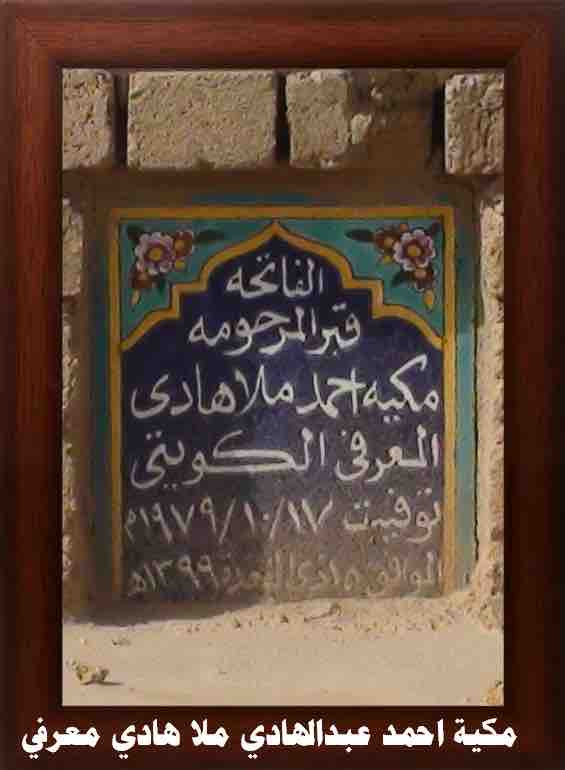 الفاتحه
قبر المرحومه
مكيه احمد ملا هادى
المعرفى الكويتى
توفيت ١٩٧٩/١٠/١٧م
الموافق ذى القعدة ١٣٩٩هـ
مكية احمد عبدالهادي ملا هادي معرفي